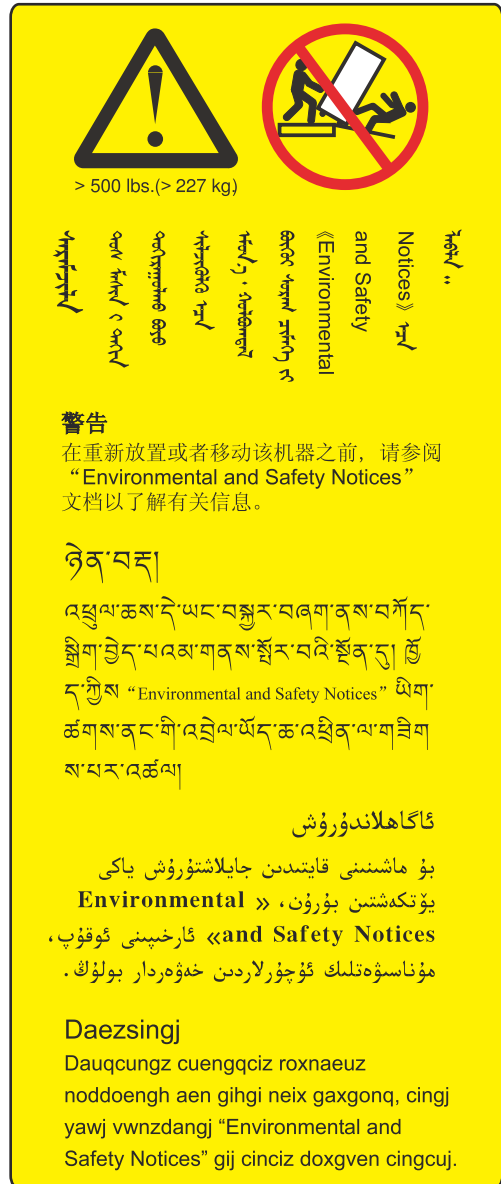 > 500 lbs.(> 227 kg.)
《Environmental
and Safety
Notices》
警告
在重新放置或者移动该机器之前，请参阅
“Environmental and Safety Notices”
文档以了解有关信息。
ཉེན་བརྡ།
འཕྲུལ་ཆས་དེ་ཡང་བསྐྱར་བཞག་ནས་བཀོད་
སྒྲིག་བྱེད་པའམ་གནས་སྤོར་བའི་སྔོན་དུ། ཁྱོ
ད་ཀྱིས “Environmental and Safety Notices” ཡིག་
ཚགས་ནང་གི་འབྲེལ་ཡོད་ཆ་འཕྲིན་ལ་གཟིག
ས་པར་འཚལ།
ئاگاھلاندۇرۇش
بۇ ماشىنىنى قايتىدىن جايلاشتۇرۇش ياكى
يۆتكەشتىن بۇرۇن، « Environmental
and Safety Notices» ئارخىپىنى ئوقۇپ،
مۇناسىۋەتلىك ئۇچۇرلاردىن خەۋەردار بولۇڭ.
Daezsingj
Dauqcungz cuengqciz roxnaeuz
noddoengh aen gihgi neix gaxgonq, cingj
yawj vwnzdangj “Environmental and
Safety Notices” gij cinciz doxgven cingcuj.